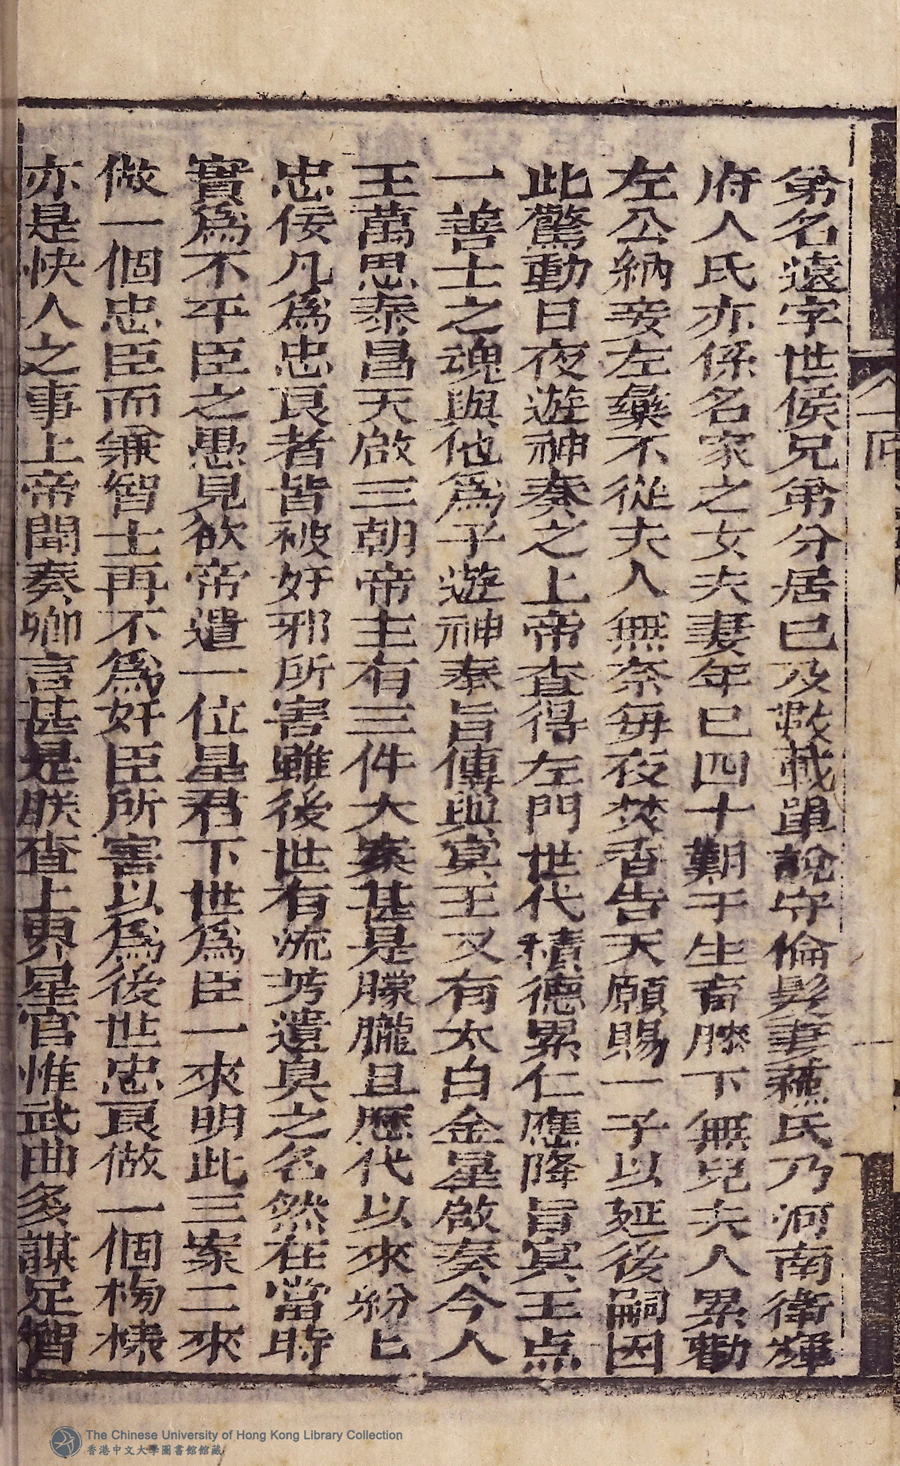 弟名遠字世侯兄弟分居已及数載單說守倫髮妻蘇氏乃河南衛輝
府人氏亦係名家之女夫妻年已四十艱于生育膝下無兒夫人累勸
左公納妾左彝不從夫人無奈每夜焚香告天願賜一子以延後嗣因
此驚動日夜遊神奏之上帝查得左門世代積德累仁應降旨冥王点
一善士之魂與他爲子遊神奉旨傳與冥王又有太白金星啟奏今人
王萬思泰昌天啟三朝帝主有三件大案甚是朦朧且歷代以來紛匕
忠佞凡爲忠良者皆被奸邪所害雖後世有流芳遺臭之名然在當時
實爲不平臣之愚見欲帝遣一位星君下世爲臣一來明此三案二來
做一個忠臣而兼智士再不爲奸臣所害以爲後世忠良做一個榜樣
亦是快人之事上帝聞奏卿言甚是朕查上界星官惟武曲多謀足智
The Chinese University of Hong Kong Library Collection
香港中文大學圖書館館藏